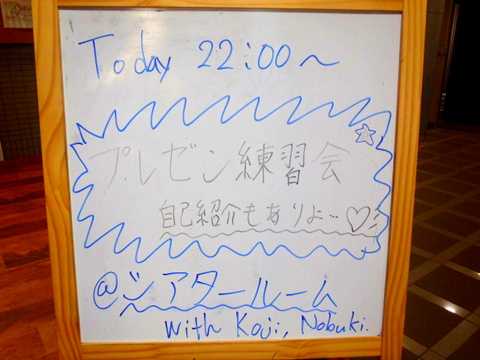 Today 22:00～
プレゼン練習会
自己紹介もありよ…♡
@シアタールーム
with Koji, Nobuki.